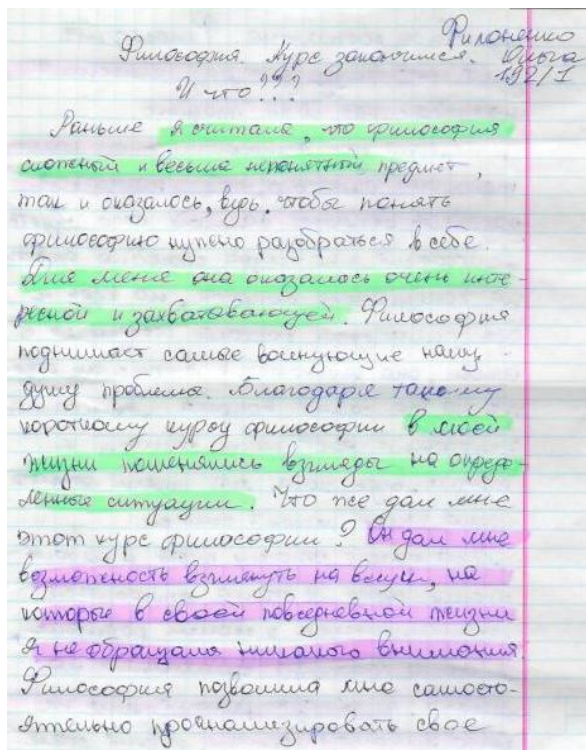 Филоненко
Философия. Курс закончился. Ольга
И что??? 192/1
Раньше я считала, что философия
сложный и весьма непонятный предмет,
так и оказалось, ведь, чтобы понять
философию нужно разобраться в себе.
Для меня она оказалось очень инте-
ресной и захватовающей. Философия
поднимает самые волнующие нашу
душу проблемы. Благодаря такому
короткому курсу философии в моей
жизни поменялись взгляды на опреде-
ленные ситуации. Что же дал мне
этот курс философии? Он дал мне
возможность взглянуть на вещи, на
которые в своей повседневной жизни
я не обращала никакого внимания.
Философия позволила мне самосто-
ятельно проанализировать свое